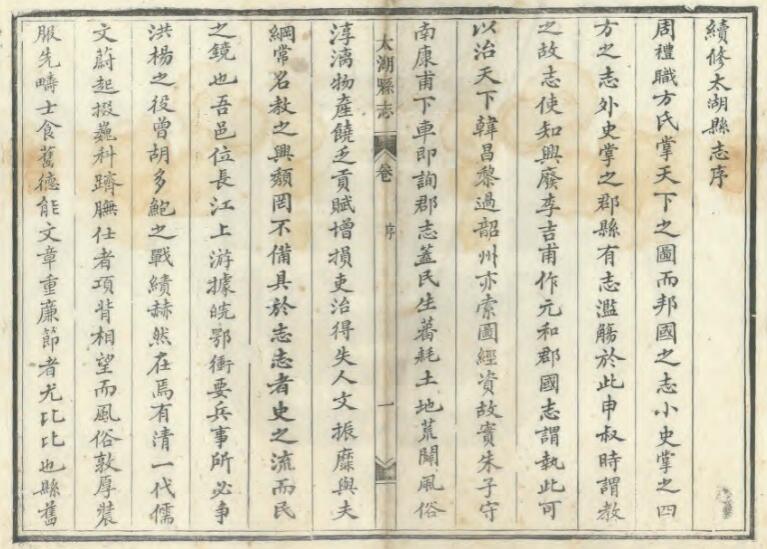 續修太湖縣志序
周禮職方氏掌天下之圖而邦國之志小史掌之四
方之志外史掌之郡縣有志濫觴於此申叔時謂教
之故志使知興廢李吉甫作元和郡國志謂執此可
以治天下韓昌黎過韶州亦索圖經資故實朱子守
南康甫下車即詢郡志蓋民生蕃耗土地荒闢風俗
太湖縣志
卷
序
一
淳漓物產饒乏貢賦增損吏治得失人文振靡與夫
綱常名教之興頹罔不備具於志志者史之流而民
之鏡也吾邑位長江上游據皖鄂衝要兵事所必爭
洪楊之役曾胡多鮑之戰績赫然在焉有清一代儒
文蔚起掇巍科躋膴仕者項背相望而風俗敦厚裝
服先疇士食舊德能文章重廉節者尤比比也縣舊